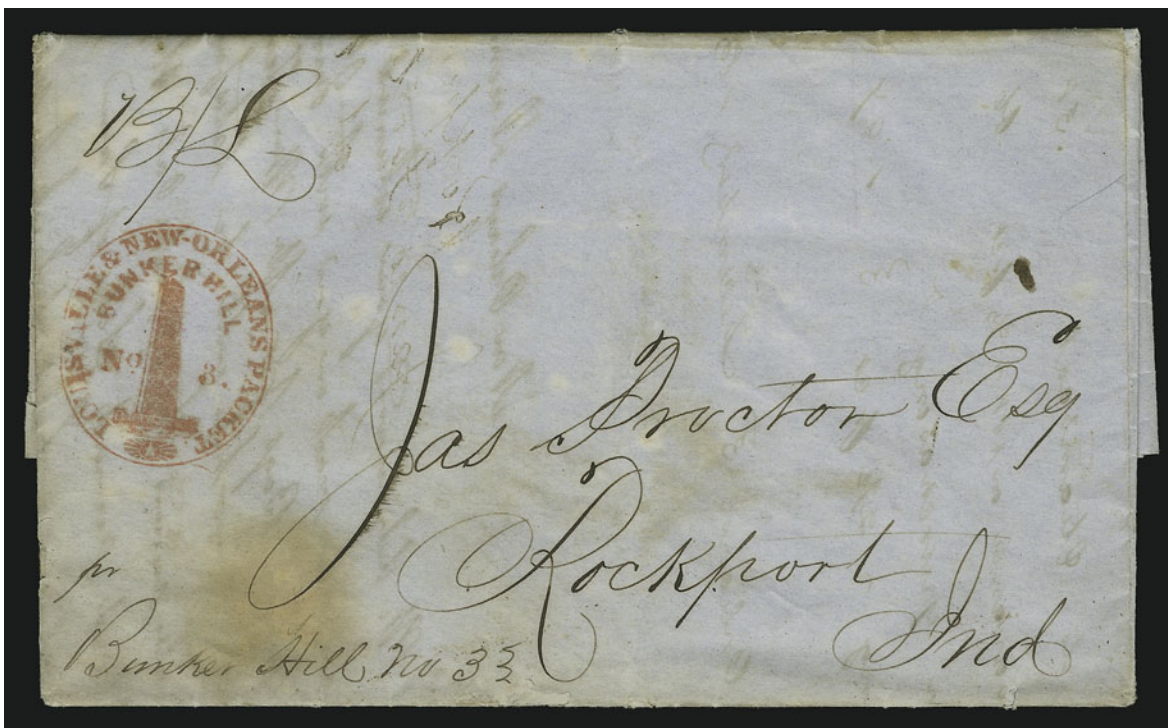 B/L
LOUISVILLE & NEW-ORLEANS PACKET.
BUNKER HILL
No 3.
Jas Proctor Esq
Rockport
Ind
pr
Bunker Hill No 3